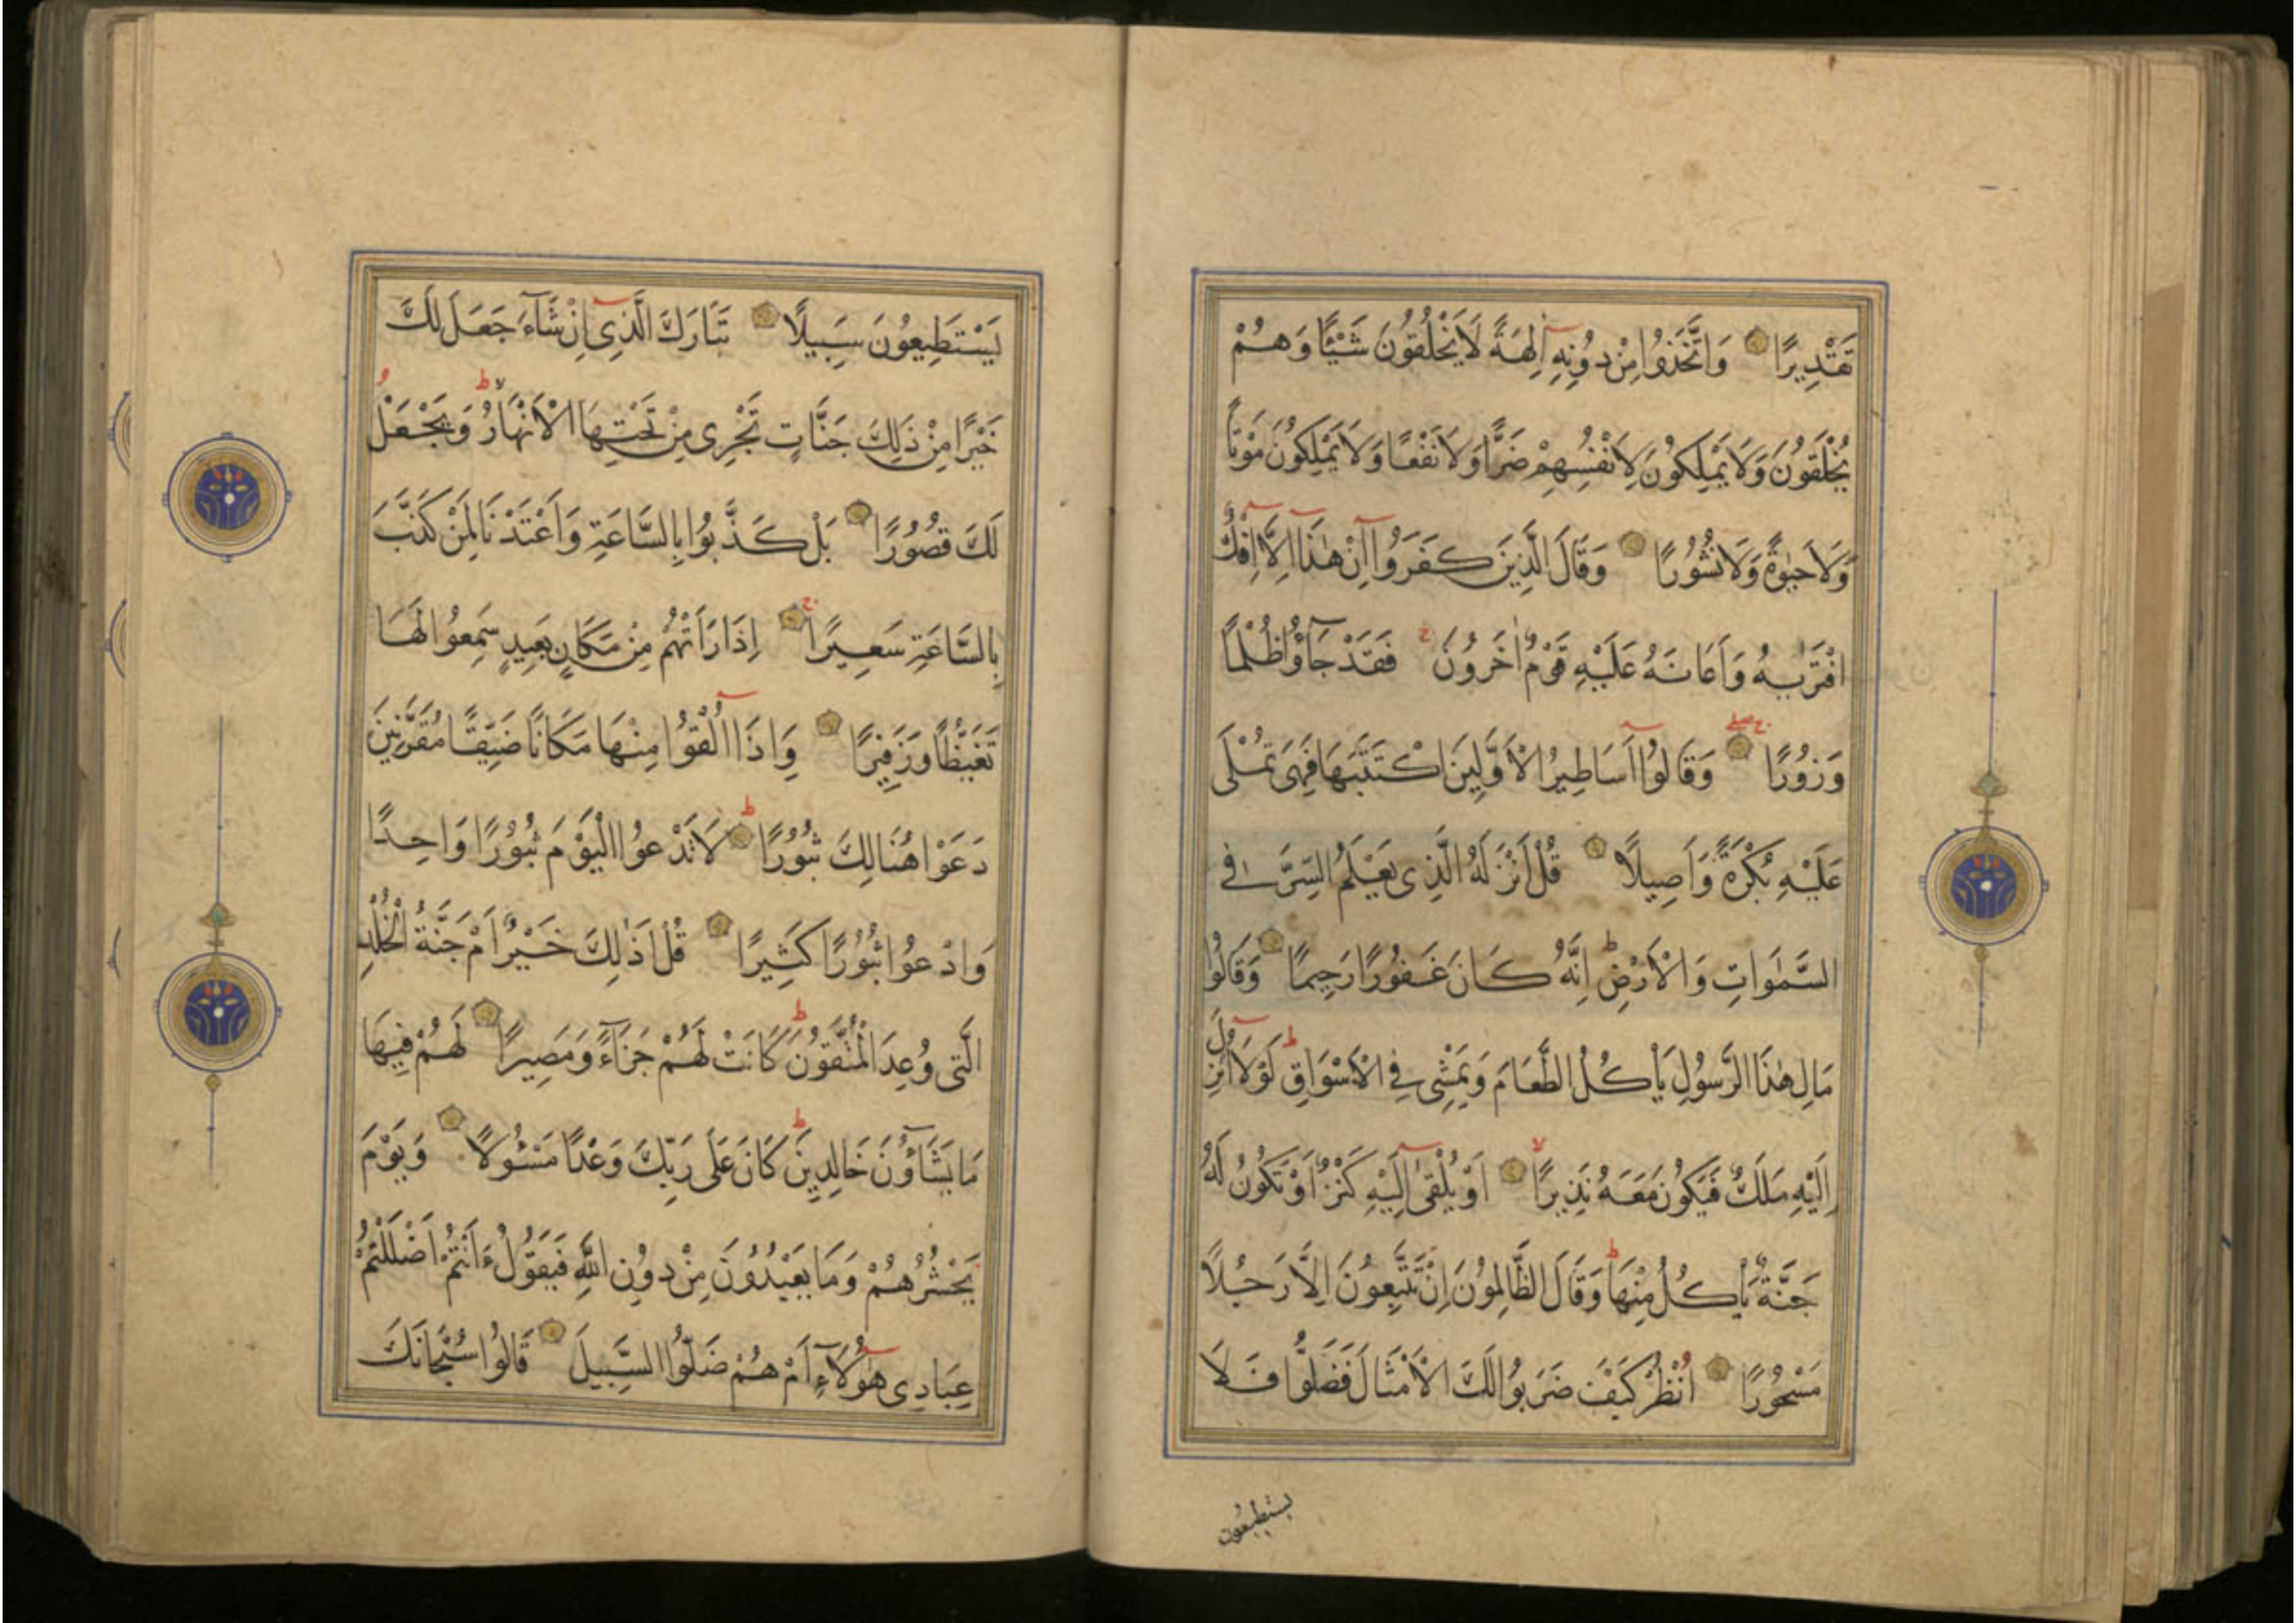 تَقْدِيرًا وَاتَّخَذُوا مِنْ دُونِهِ آلِهَةً لَا يَخْلُقُونَ شَيْئًا وَهُمْ
يُخْلَقُونَ وَلَا يَمْلِكُونَ لِأَنْفُسِهِمْ ضَرًّا وَلَا نَفْعًا وَلَا يَمْلِكُونَ مَوْتًا
وَلَا حَيٰوةً وَلَا نُشُورًا وَقَالَ الَّذِينَ كَفَرُوا إِنْ هٰذَا إِلَّا إِفْكٌ
افْتَرٰيهُ وَأَعَانَهُ عَلَيْهِ قَوْمٌ اٰخَرُونَ ج فَقَدْ جَاؤُا ظُلْمًا
وَزُورًا ج صلے وَقَالُوا أَسَاطِيرُ الْأَوَّلِينَ اكْتَتَبَهَا فَهِيَ تُمْلَى
عَلَيْهِ بُكْرَةً وَأَصِيلًا قُلْ أَنْزَلَهُ الَّذِي يَعْلَمُ السِّرَّ فِي
السَّمٰوَاتِ وَالْأَرْضِ ط إِنَّهُ كَانَ غَفُورًا رَحِيمًا وَقَالُوا
مَالِ هٰذَا الرَّسُولِ يَأْكُلُ الطَّعَامَ وَيَمْشِي فِي الْأَسْوَاقِ ط لَوْلَا أُنْزِلَ
إِلَيْهِ مَلَكٌ فَيَكُونَ مَعَهُ نَذِيرًا لا أَوْ يُلْقٰى إِلَيْهِ كَنْزٌ أَوْ تَكُونُ لَهُ
جَنَّةٌ يَأْكُلُ مِنْهَا ط وَقَالَ الظَّالِمُونَ إِنْ تَتَّبِعُونَ إِلَّا رَجُلًا
مَسْحُورًا اُنْظُرْ كَيْفَ ضَرَبُوا لَكَ الْأَمْثَالَ فَضَلُّوا فَلَا
يستطيعون
يَسْتَطِيعُونَ سَبِيلًا تَبَارَكَ الَّذِي إِنْ شَآءَ جَعَلَ لَكَ
خَيْرًا مِنْ ذَلِكَ جَنَّاتٍ تَجْرِي مِنْ تَحْتِهَا الْأَنْهَارُ لا ط وَيَجْعَلْ
لَكَ قُصُورًا بَلْ كَذَّبُوا بِالسَّاعَةِ وَأَعْتَدْنَا لِمَنْ كَذَّبَ
بِالسَّاعَةِ سَعِيرًا ج إِذَا رَأَتْهُمْ مِنْ مَكَانٍ بَعِيدٍ سَمِعُوا لَهَا
تَغَيُّظًا وَزَفِيرًا وَإِذَا أُلْقُوا مِنْهَا مَكَانًا ضَيِّقًا مُقَرَّنِينَ
دَعَوْا هُنَالِكَ ثُبُورًا ط لَا تَدْعُوا الْيَوْمَ ثُبُورًا وَاحِدًا
وَادْعُوا ثُبُورًا كَثِيرًا قُلْ أَذٰلِكَ خَيْرٌ أَمْ جَنَّةُ الْخُلْدِ
الَّتِي وُعِدَ الْمُتَّقُونَ ط كَانَتْ لَهُمْ جَزَآءً وَمَصِيرًا لَهُمْ فِيهَا
مَا يَشَآؤُنَ خَالِدِينَ ط كَانَ عَلَى رَبِّكَ وَعْدًا مَسْئُولًا وَيَوْمَ
يَحْشُرُهُمْ وَمَا يَعْبُدُونَ مِنْ دُونِ اللَّهِ فَيَقُولُ ءَأَنْتُمْ أَضْلَلْتُمْ
عِبَادِي هٰؤُلَآءِ أَمْ هُمْ ضَلُّوا السَّبِيلَ قَالُوا سُبْحَانَكَ